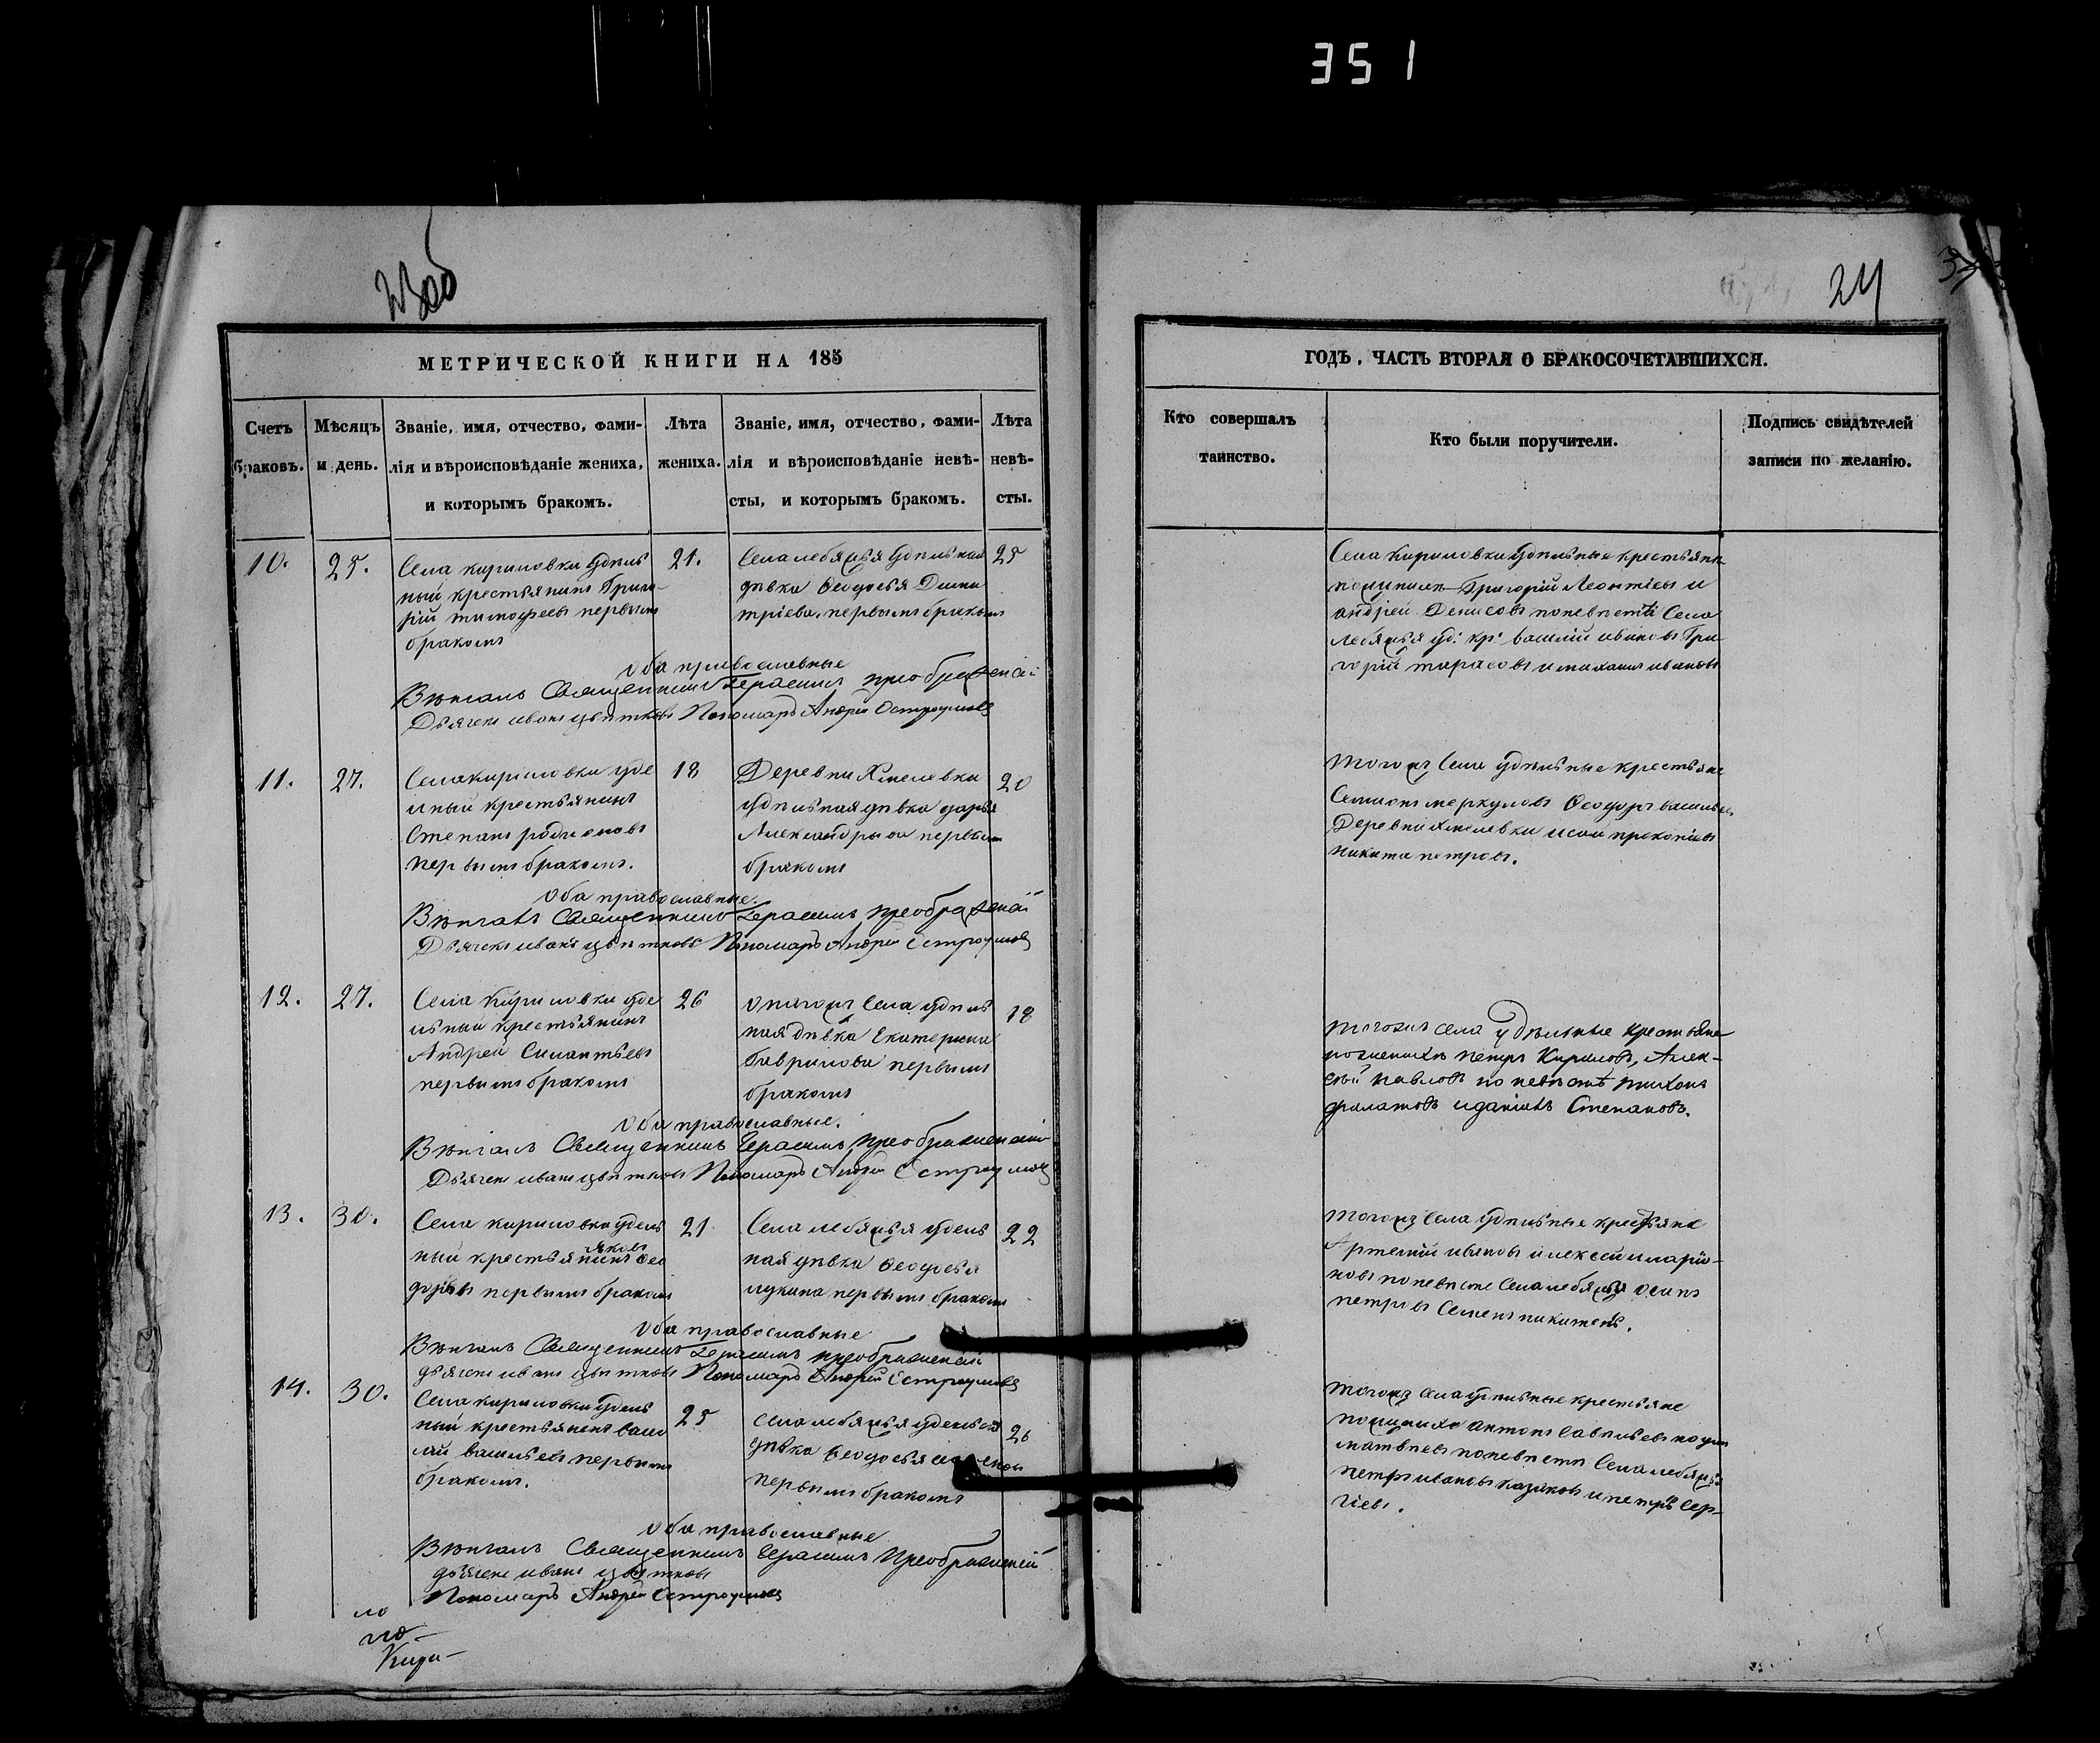 351
24
МЕТРИЧЕСКОЙ КНИГИ НА 185
ГОДЪ, ЧАСТЬ ВТОРАЯ О БРАКОСОЧЕТАВШИХСЯ.
Счетъ браковъ.
Мѣсяцъ и день.
Званіе, имя, отчество, фами-
лія и вѣроисповѣданіе жениха,
и которымъ бракомъ.
Лѣта
жениха.
Званіе, имя, отчество, фами-
лія и вѣроисповѣданіе невѣ-
сты, и которымъ бракомъ.
Лѣта
невѣ-
сты.
Кто совершалъ
таинство.
Кто были поручители.
Подпись свидѣтелей
записи по желанію.
10.
25.
Села кириловки удѣль
ный крестьянинъ Григо-
рій тимофеевъ первымъ
бракомъ
21.
Села лебяжья удѣльная
дѣвка Ѳеодосья Дими
тріева, первымъ бракомъ
25
Оба православные
Вѣнчалъ Священникъ Герасимъ преображенскій
Дьячекъ иванъ цвѣтковъ Пономарь Андрей Остроумовъ
Села Кириловки удѣльные крестьяне
по женихѣ Григорій Леонтіевъ и
андрей Денисовъ по невѣстѣ Села
лебяжья уд: кр: василій ивановъ Гри
горій тарасовъ и михаилъ ивановъ
11.
27.
Села кириловки уде
льный крестьянинъ
Степанъ родионовъ
первымъ бракомъ.
18
Деревни Хмелевки
удѣльная дѣвка дарья
Александрова первымъ
бракомъ
20
Оба православные.
Вѣнчалъ Священникъ Герасимъ преображенскій
Дьячекъ иванъ цвѣтковъ Пономарь Андрей Остроумовъ
Тогожъ Села удѣльные крестьяне
Семионъ меркуловъ Ѳеодоръ васильевъ
Деревни хмелевки исаи прокопіевъ
никита петровъ.
12.
27.
Села Кириловки уде
льный крестьянинъ
Андрей Силантьевъ
первымъ бракомъ
26
тогожъ Села удѣль
ная дѣвка Екатерина
Гаврилова первымъ
бракомъ
18
Оба православные.
Вѣнчалъ Священникъ Герасимъ преображенскій
Дьячекъ иванъ цвѣтковъ Пономарь Андрей Остроумовъ
тогожъ села удѣльные крестьяне
по женихѣ петръ Кириловъ, Алек-
сѣй павловъ по невѣстѣ тихонъ
филатовъ и данилъ Степановъ.
13.
30.
Села кириловки удель
яковъ
ный крестьянинъ Ѳео
доровъ первымъ бракомъ
21
Села лебяжья удель
ная дѣвка Ѳеодосья
лукина первымъ бракомъ
22
Оба православные
Вѣнчалъ Священникъ Герасимъ преображенскій
дьячекъ иванъ цвѣтковъ Пономарь Андрей Остроумовъ
тогожъ Села удѣльные крестьяне
Артемій ивановъ алексей иларіо-
новъ по невѣсте Села лебяжья осипъ
петровъ Семенъ никитевъ.
14.
30.
Села кириловки удель
ный крестьянинъ васи
лій васильевъ первымъ
бракомъ.
25
Села лебяжья удельная
дѣвка Ѳеодосья
первымъ бракомъ
Оба православные
Вѣнчалъ Священникъ Герасимъ Преображенскій
дьячекъ иванъ цвѣтковъ
Пономарь Андрей Остроумовъ
тогожъ Села удѣльные крестьяне
по женихѣ антонъ савельевъ
матвѣевъ по невѣсти Села лебяжья
петръ ивановъ казаковъ и петръ Сер-
гіевъ.
ло
Кири-